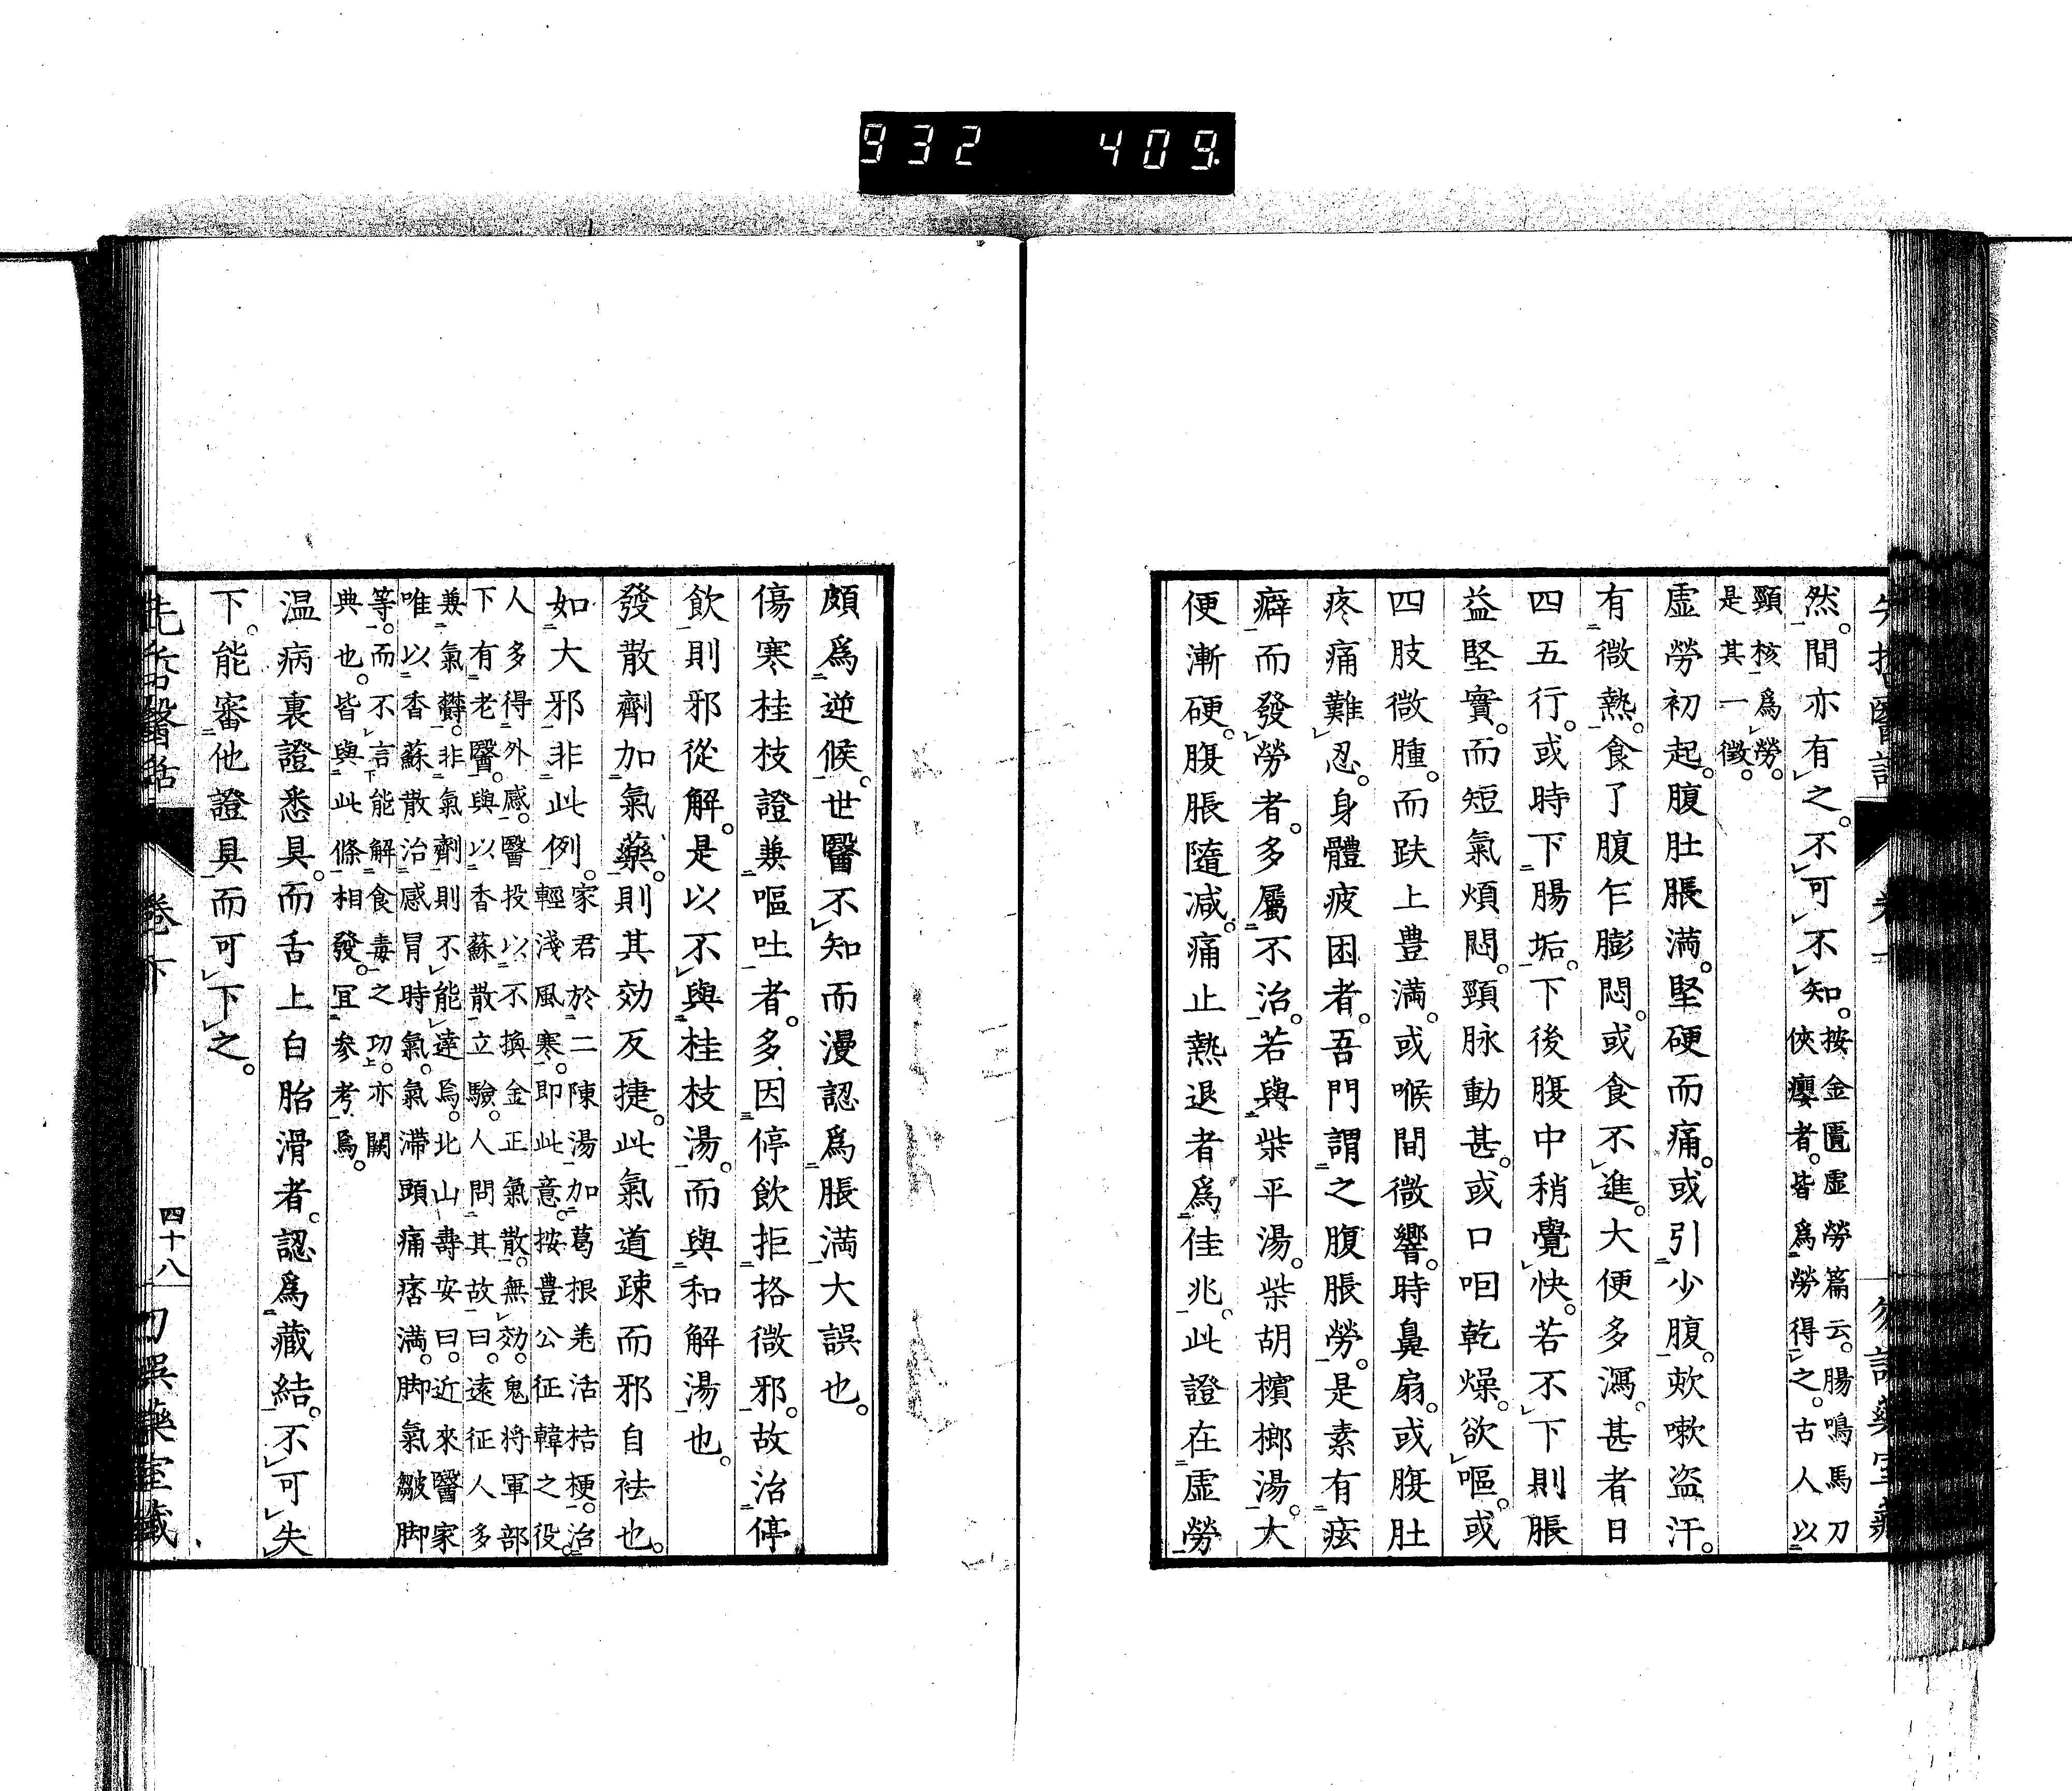 932 409.
然。間亦有之。不可不知。按金匱虛勞篇云。腸鳴馬刀
俠癭者。皆爲勞得之。古人以
頸核爲勞。
是其一徵。
虛勞初起。腹肚脹滿。堅硬而痛。或引少腹。欬嗽盜汗。
有微熱。食了腹乍膨悶。或食不進。大便多瀉。甚者日
四五行。或時下腸垢。下後腹中稍覺快。若不下則脹
益堅實。而短氣煩悶。頸脉動甚。或口咽乾燥。欲嘔。或
四肢微腫。而趺上豊滿。或喉間微響。時鼻扇。或腹肚
疼痛難忍。身體疲困者。吾門謂之腹脹勞。是素有痃
癖而發勞者。多屬不治。若與柴平湯。柴胡檳榔湯。大
便漸硬。腹脹隨減。痛止熱退者爲佳兆。此證在虛勞
頗爲逆候。世醫不知而漫認爲脹滿大誤也。
傷寒桂枝證兼嘔吐者。多因停飲拒格微邪。故治停
飲則邪從解。是以不與桂枝湯。而與和解湯也。
發散劑加氣藥。則其効反捷。此氣道疎而邪自祛也。
如大邪非此例。家君於二陳湯加葛根羌活桔梗。治
輕淺風寒。即此意。按豊公征韓之役。
人多得外感。醫投以不換金正氣散。無効。鬼将軍部
下有老醫。與以香蘇散立驗。人問其故。曰。遠征人多
兼氣欝。非氣劑則不能達焉。北山壽安曰。近來醫家
唯以香蘇散治感冒時氣。氣滯頭痛痞滿。脚氣皺脚
等。而不言能解食毒之功。亦闕
典也。皆與此條相發。宜参考焉。
温病裏證悉具。而舌上白胎滑者。認爲藏結。不可失
下。能審他證具而可下之。
先哲醫話 卷下 四十八 勿誤藥室藏